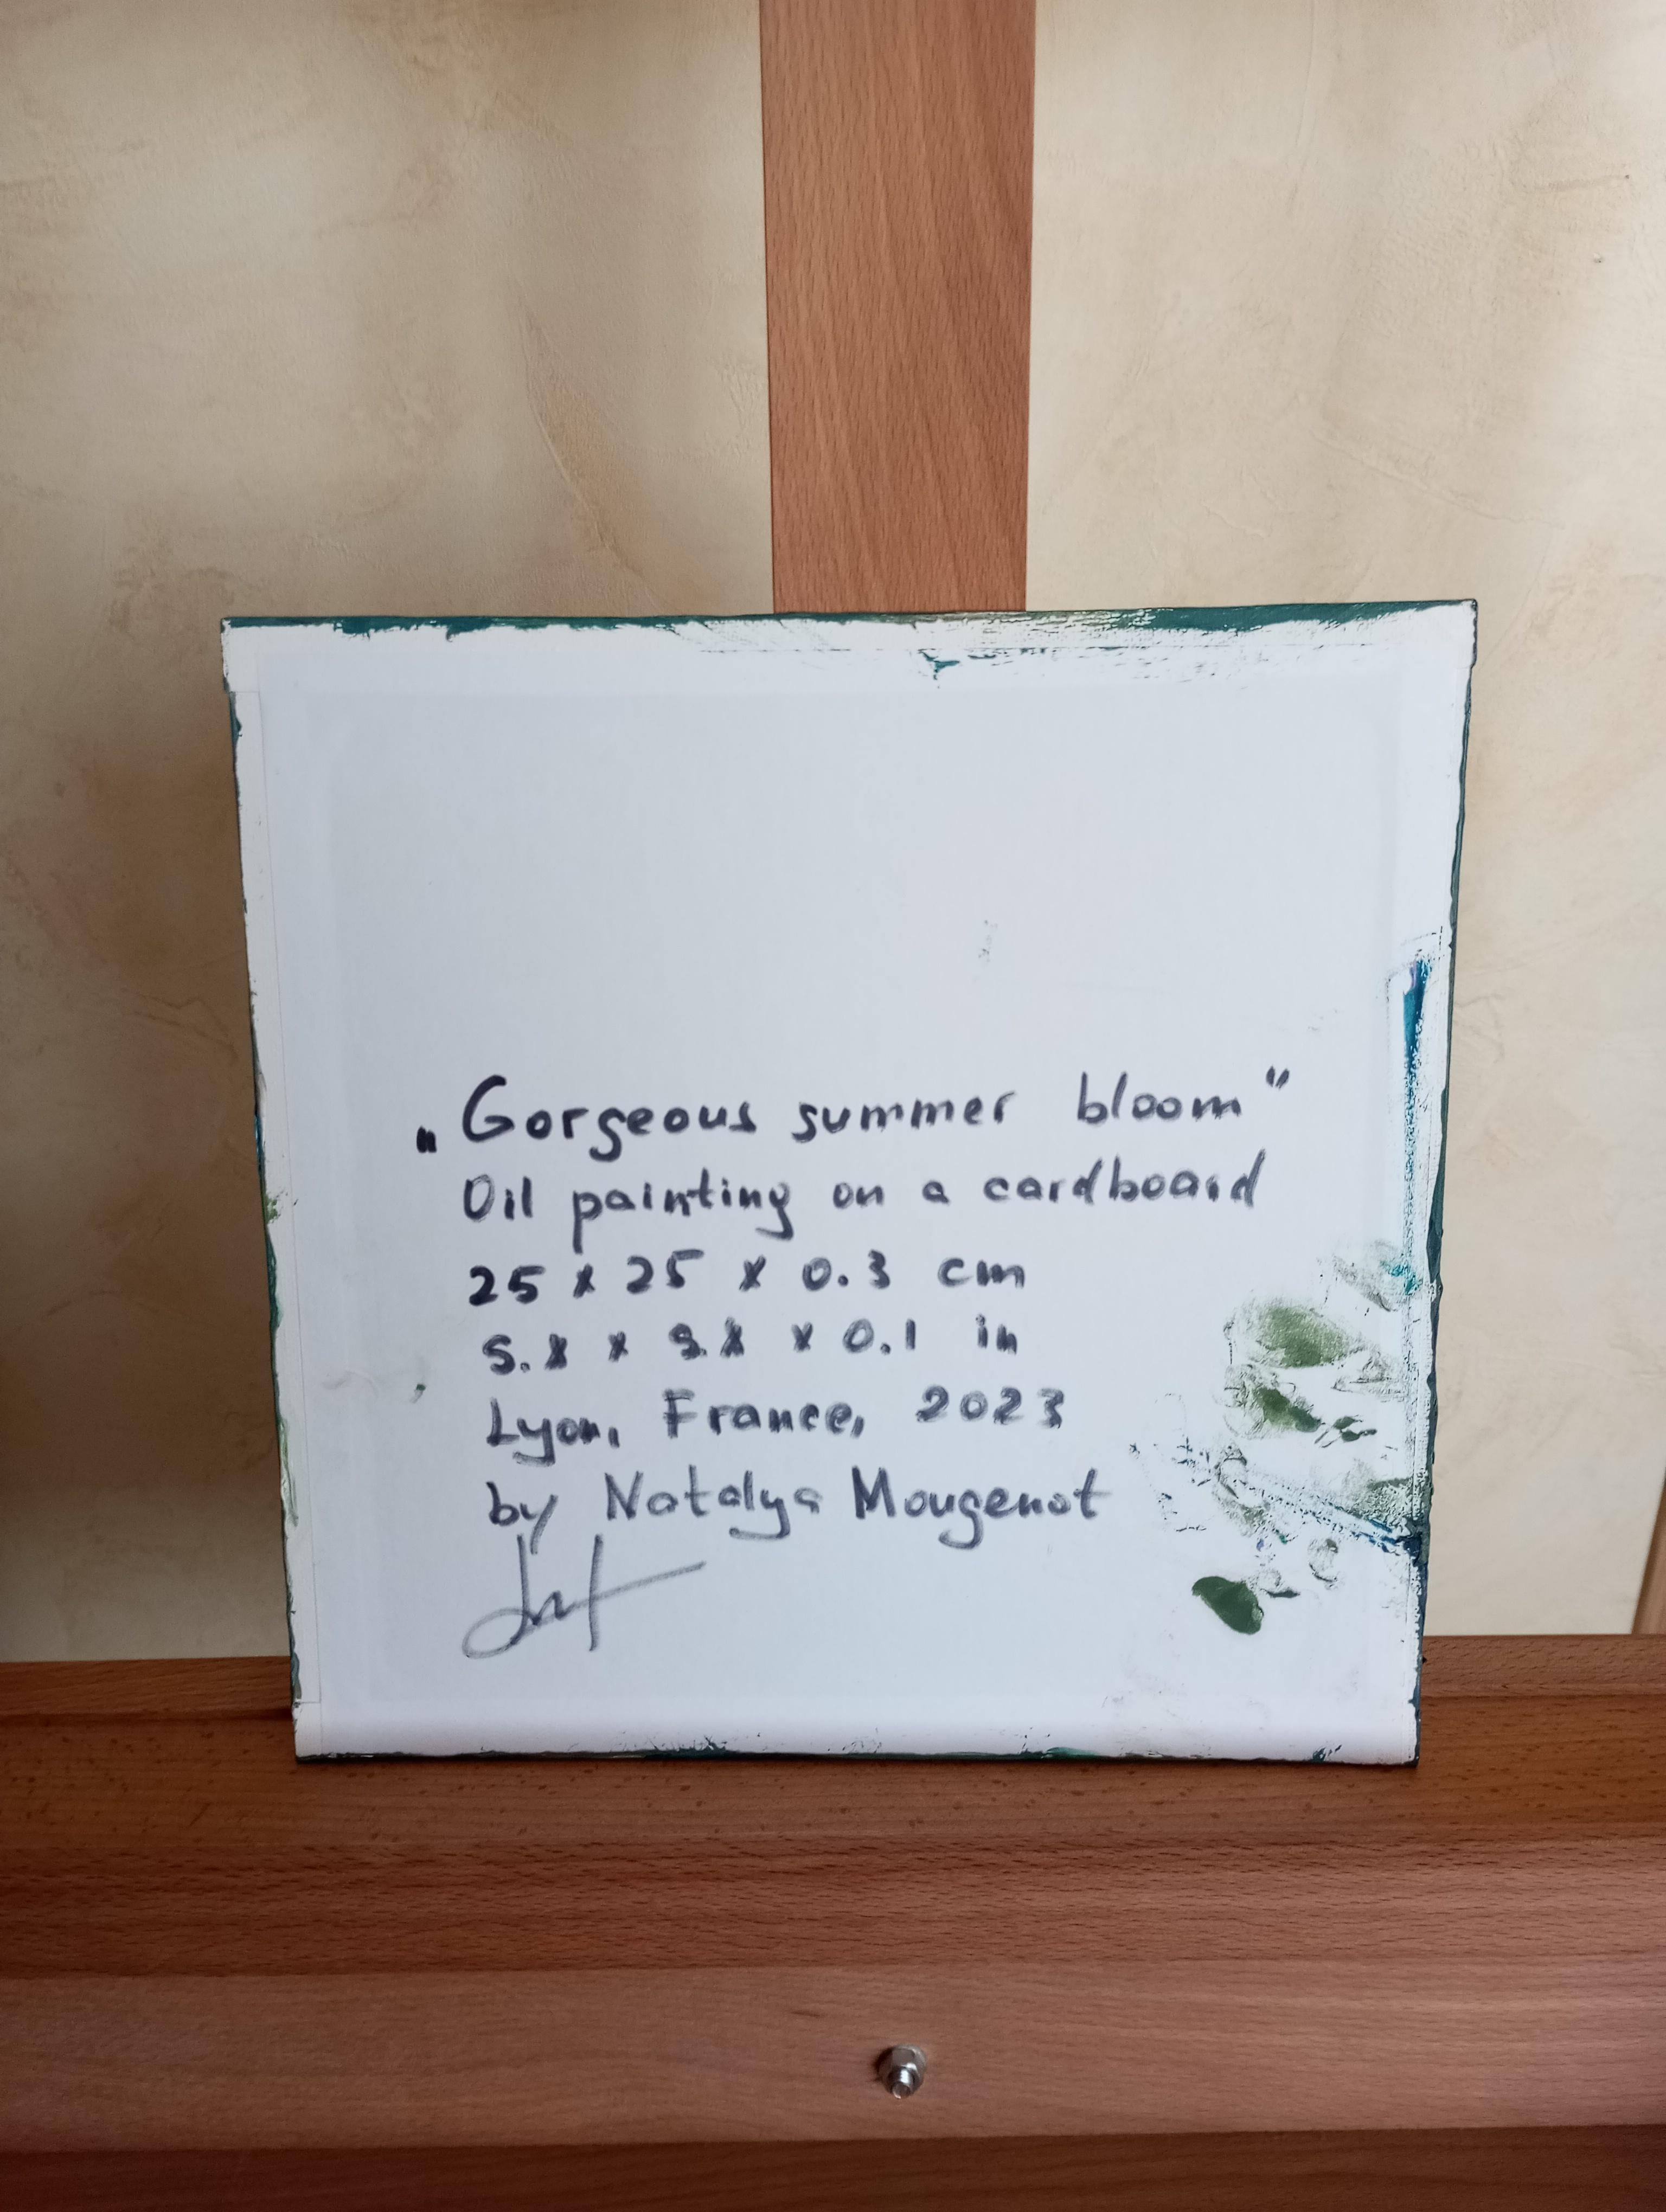 „Gorgeous summer bloom"
Oil painting on a cardboard
25 x 25 x 0.3 cm
x x 0.1 in
Lyon, France, 2023
by Natalya Mougenot